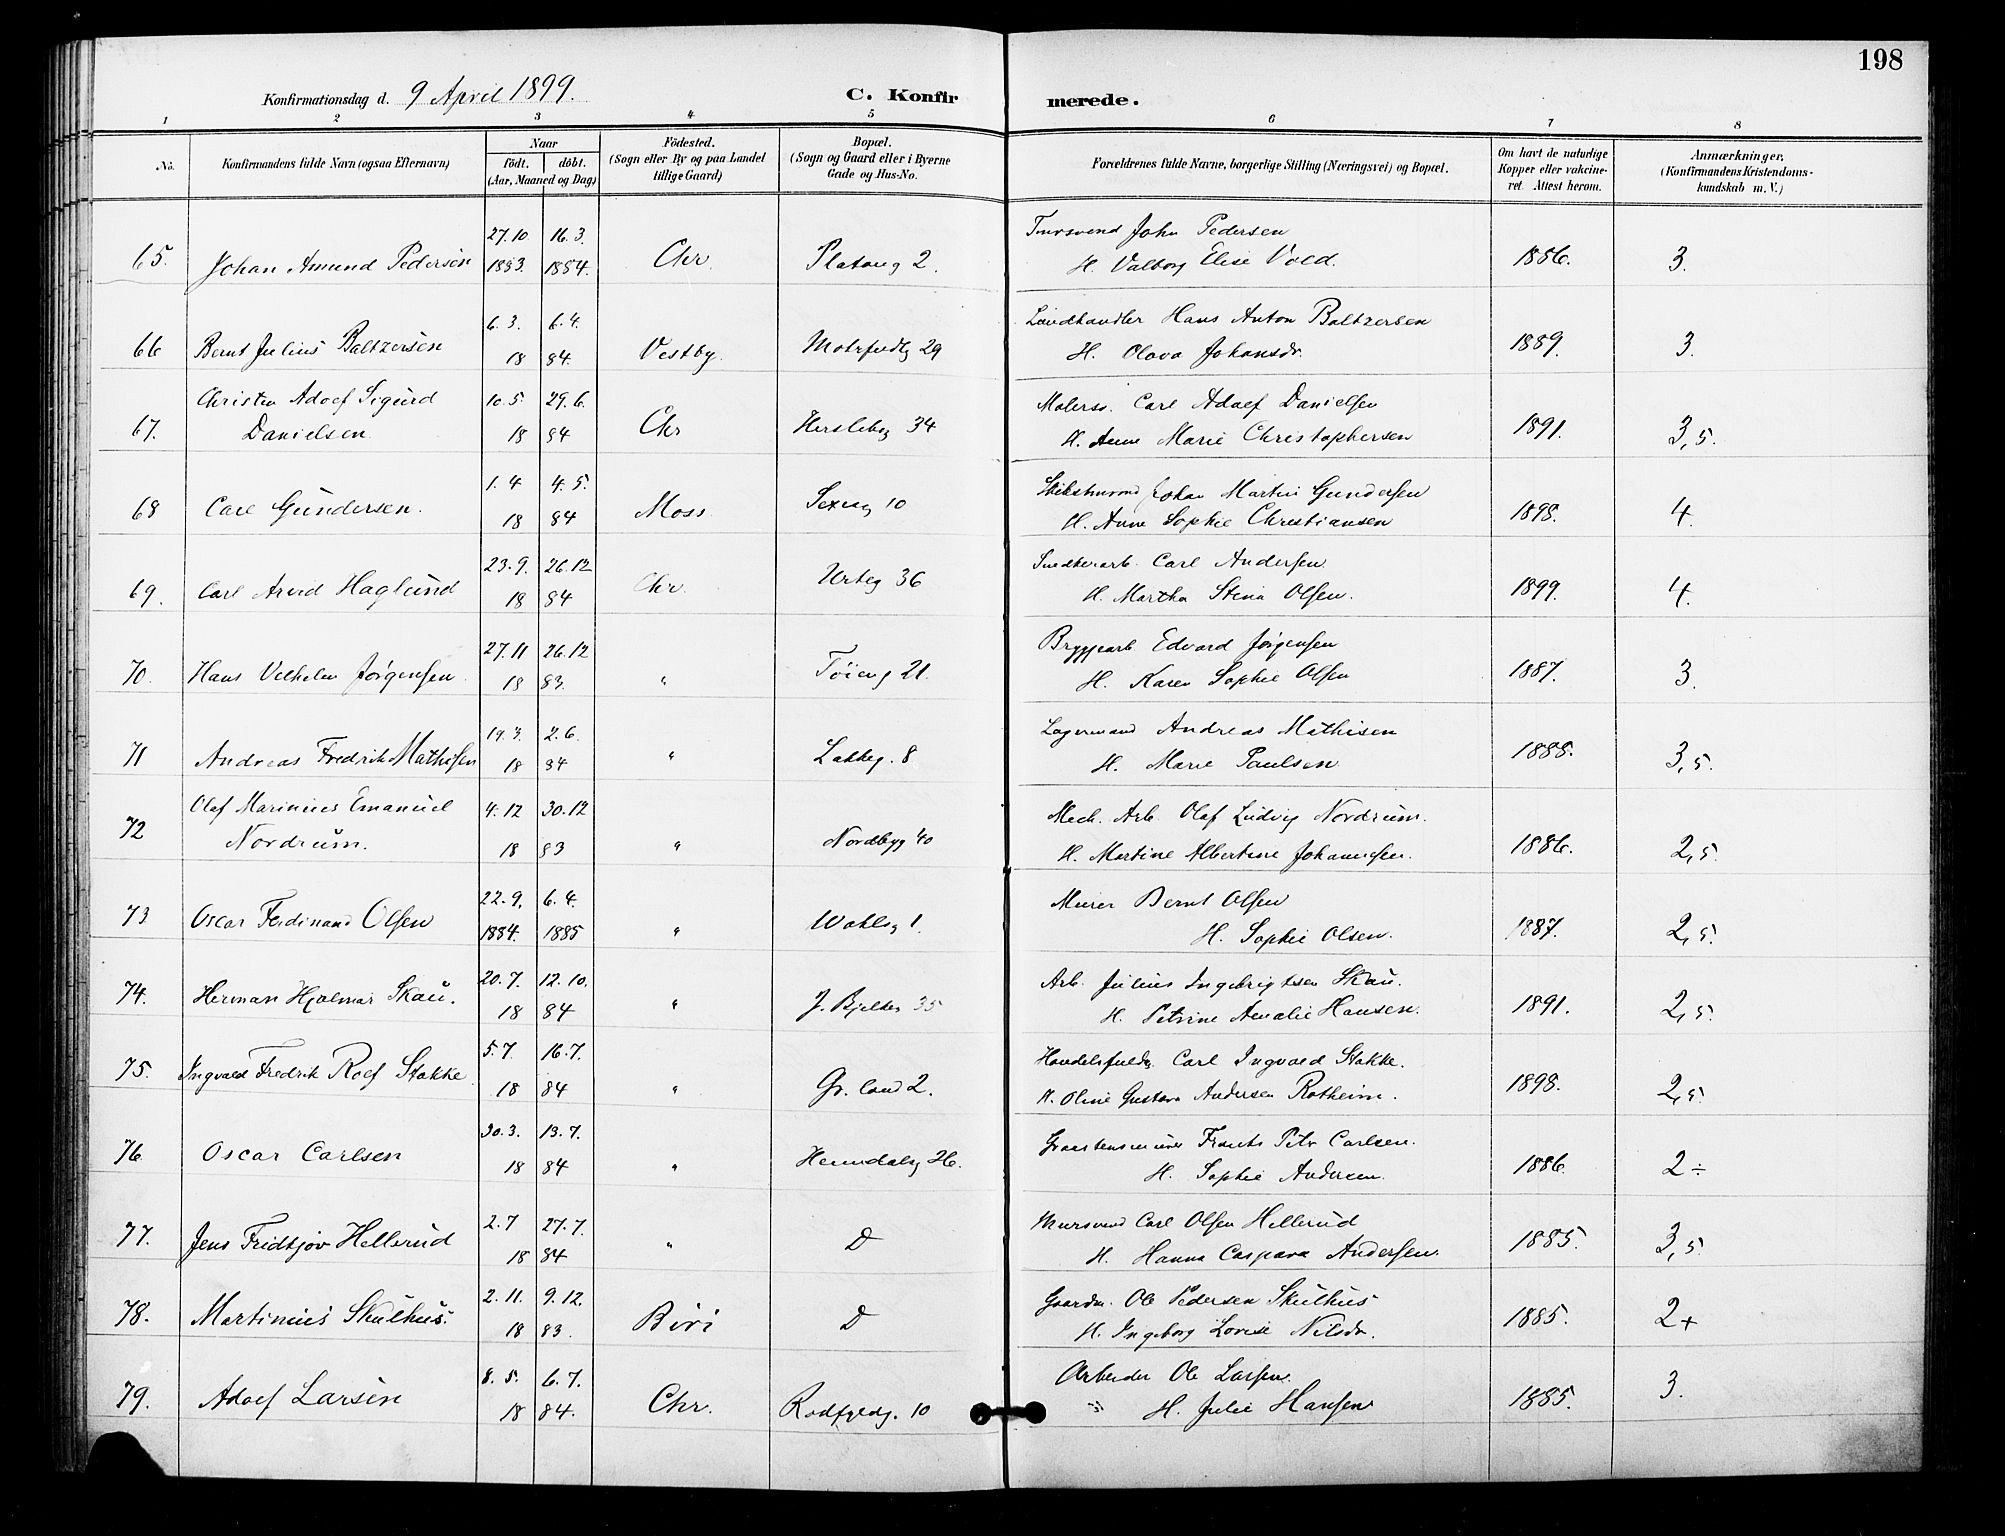 198
Konfirmationsdag d. 9 April 1899.
C. Konfirmerede.
1 2 3 4 5 6 7 8
No.
Konfirmandens fulde Navn (ogsaa Efternavn)
Naar
födt. döbt.
(Aar, Maaned og Dag)
Födested.
(Sogn eller By og paa Landet
tillige Gaard)
Bopæl.
(Sogn og Gaard eller i Byerne
Gade og Hus-No.
Forældrenes fulde Navne, borgerlige Stilling (Næringsvei) og Bopæl.
Om havt de naturlige
Kopper eller vakcine-
ret. Attest herom.
Anmærkninger.
(Konfirmandens Kristendoms-
kundskab m. V.)
27.10 16.3. John Pedersen
65. Johan Amund Pedersen 1883. 1884. Chr. Platoug 2. H. Valborg Elise Vold. 1886. 3.
6.3. 6.4. Landhandler Hans Anton Baltzersen
66 Bernt Julius Baltzersen 18 84. Vestby. 29 H. Olava Johansdr. 1889. 3.
Christen Adolf Sigurd 10.5. 29.6. Malersv. Carl Adolf Danielsen
67. Danielsen. 18 84 Chr Herslebsg 34 H. Anne Marie Christophersen 1891. 3,5.
1.4 4.5. Johan Martin Gundersen
68 Carl Gundersen. 18 84 Moss Sexesg 10 H. Anne Sophie Christiansen 1898. 4.
23.9. 26.12 Carl Andersen
69. Carl Arvid Haglund 18 84 Chr. Urteg 36 H. Martha Stina Olsen. 1899. 4.
27.11 26.12 Bryggearb Edvard Jørgensen
70. Hans Vilhelm Jørgensen. 18 83. " Töieng 21. H. Karen Sophie Olsen 1887. 3.
19.3. 2.6. Lagermand Andreas Mathisen
71 Andreas Fredrik Mathisen 18 84 " Lakkeg. 8 H. Marie Paulsen 1888. 3,5.
Olaf Marinius Emanuel 4.12 30.12 Mech. Arb. Olaf Ludvig Nordrum.
72 Nordrum. 18 83 " Nordbyg 40 H. Martine Albertine Johannesen. 1886. 2,5.
22.9. 6.4. Murer Bernt Olsen
73 Oscar Ferdinand Olsen 1884. 1885 " Wahlsg 1. H. Sophie Olsen. 1887. 2,5.
20.7. 12.10. Arb. Julius Ingebrigtsen Skau.
74. Herman Hjalmar Skau. 18 84 " J. Bjelkes 35 H. Petrine Amalie Hansen. 1891. 2,5.
5.7. 16.7. Handelsfuldm. Carl Ingvald Stakke.
75. Ingvald Fredrik Rolf Stakke 18 84 " Gr. land 2. H. Oline Gustava Andersen Rotheim. 1898. 2,5.
30.3. 13.7. Graastensmurer Frants Petr Carlsen.
76 Oscar Carlsen 18 84 " Heimdalsg 26. H. Sophie Andersen. 1886. 2÷
2.7 27.7. Mursvend Carl Olsen Hellerud
77. Jens Fridtjov Hellerud 18 84 " D H. Hanna Caspara Andersen. 1885. 3,5.
2.11. 9.12. Gaardm. Ole Pedersen Skulhus
78. Martinius Skulhus. 18 83. Biri D H. Ingeborg Lovise Nilsdr. 1885. 2+
8.5. 6.7. Arbeider Ole Larsen.
79. Adolf Larsen 18 84. Chr. Rodfyldg. 10 " H. Julie Hansen 1885. 3.